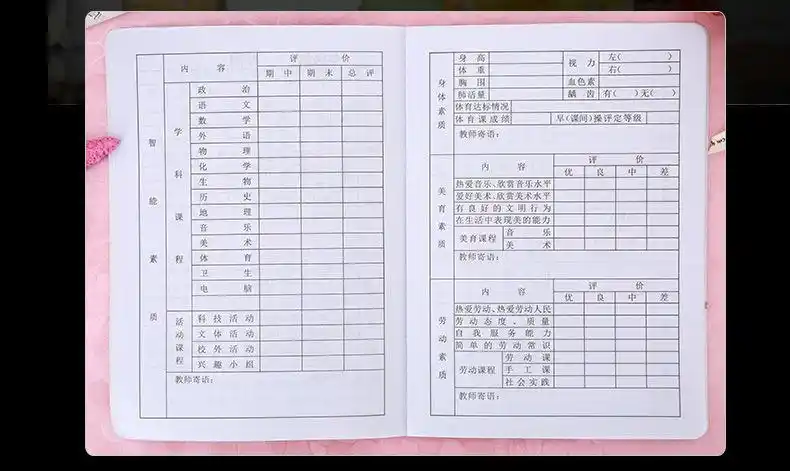 智能素质
内容
评价
期中 期末 总评
学科课程
政治
语文
数学
外语
物理
化学
生物
历史
地理
音乐
美术
体育
卫生
电脑
活动课程
科技活动
文体活动
校外活动
兴趣小组
教师寄语:
身体素质
身高 视力 左( )
体重 右( )
胸围 血色素
肺活量 龋齿 有( )无( )
体育达标情况
体育课成绩 早(课间)操评定等级
教师寄语:
美育素质
内容
评价
优 良 中 差
热爱音乐、欣赏音乐水平
爱好美术、欣赏美术水平
有良好的文明行为
在生活中表现美的能力
美育课程
音乐
美术
教师寄语:
劳动素质
内容
评价
优 良 中 差
热爱劳动、热爱劳动人民
劳动态度、质量
自我服务能力
简单的劳动常识
劳动课程
劳动课
手工课
社会实践
教师寄语: